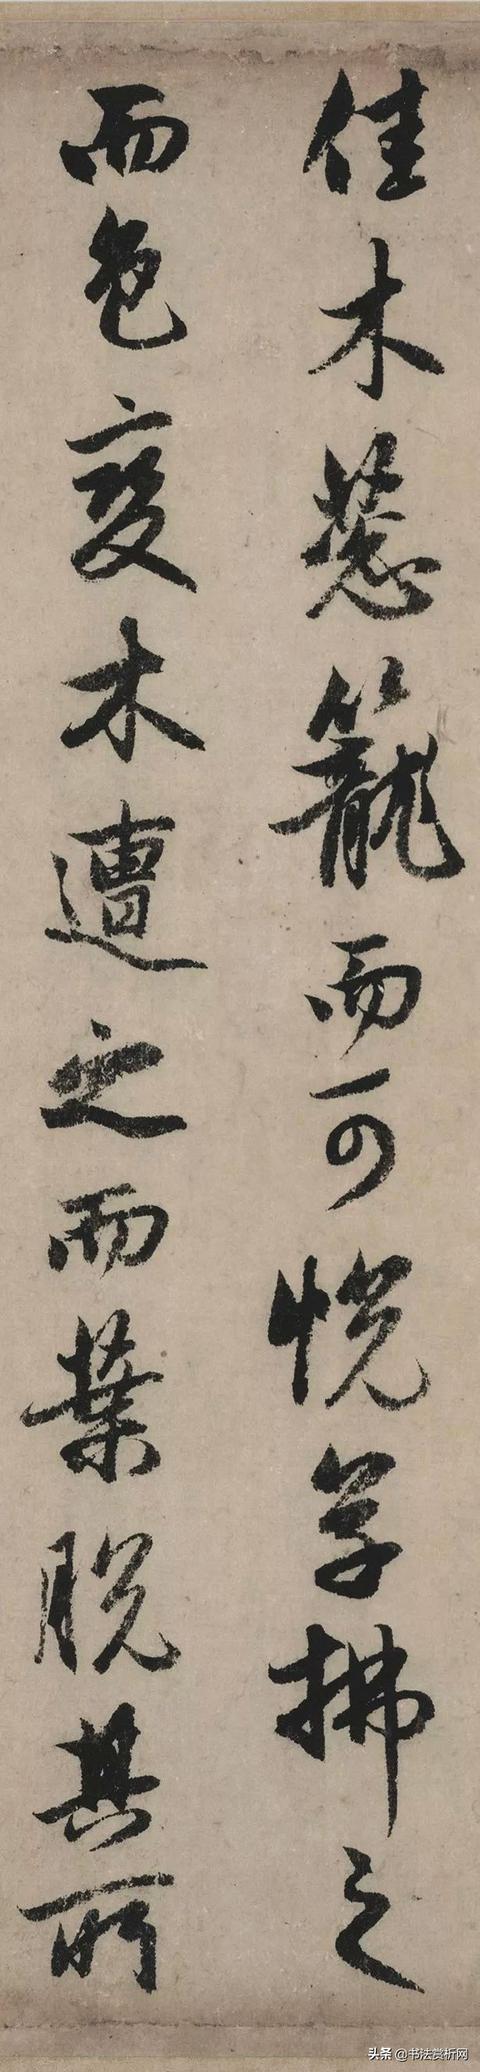 佳木葱籠而可悦草拂之
而色變木遭之而葉脱其所
头条 @书法赏析网